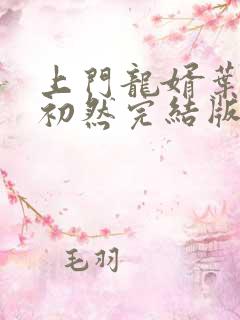 上門龍婿葉
初然完結版
毛羽